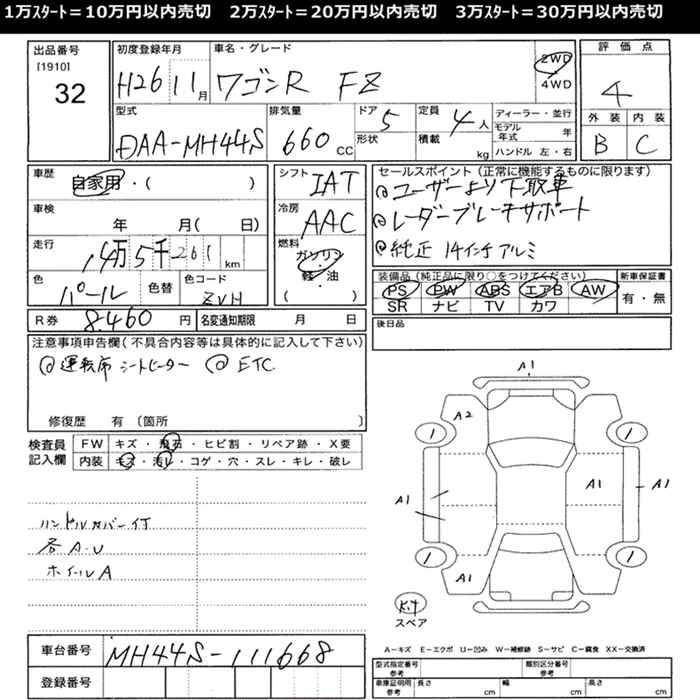 1万ｽﾀｰﾄ＝10万円以内売切　2万ｽﾀｰﾄ＝20万円以内売切　3万ｽﾀｰﾄ＝30万円以内売切
出品番号
[1910]
32
初度登録年月
H26 11月
車名・グレード
ワゴンR FZ
2WD
4WD
評価点
4
外装 内装
B C
型式
DAA-MH44S
排気量
660 CC
ドア 5
形状
定員 4人
積載 kg
ディーラー・並行
モデル年式 年
ハンドル 左・右
車歴
自家用・( )
車検
年 月( 日)
走行
14万5千261 km
色
パール 色替
色コード
ZVH
シフト
IAT
冷房
AAC
燃料
ガソリン
軽・油
( )
セールスポイント（正常に機能するものに限ります）
@ユーザーより下取車
@レーダーブレーキサポート
@純正 14インチアルミ
装備品（純正品に限り○をつけてください）
PS PW ABS エアB AW
SR ナビ TV カワ
新車保証書
有・無
後日品
R券 8460 円 名変通知期限 月 日
注意事項申告欄(不具合内容等は具体的に記入して下さい)
@運転席シートヒーター @ETC
修復歴 有〔箇所 〕
検査員記入欄
FW キズ・飛石・ヒビ割・リペア跡・X要
内装 キズ・汚レ・コゲ・穴・スレ・キレ・破レ
ハンドルカバー付
各A・U
ホイールA
A1
A2
1 1
A1 A1 A1
1 1
A1
スペア
A－キズ E－エクボ U－凹み W－補修跡 S－サビ C－腐食 XX－交換済
車台番号 MH44S-111668
登録番号
型式指定番号 参考
類別区分番号 参考
車庫証明用 参考 長さ cm 幅 cm 高さ cm